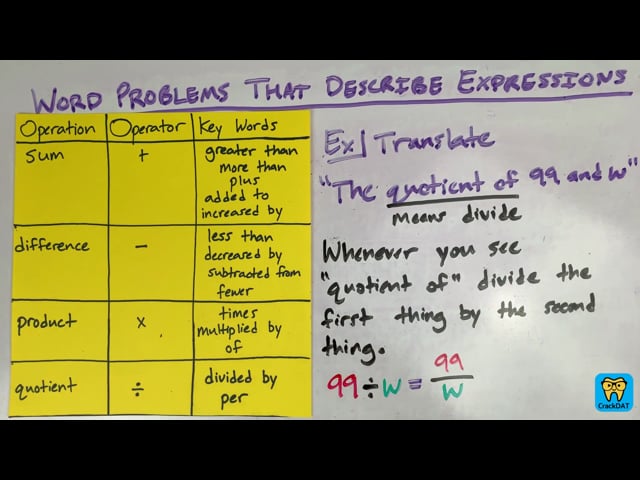 WORD PROBLEMS THAT DESCRIBE EXPRESSIONS
Operation Operator Key Words
sum + greater than
more than
plus
added to
increased by
difference − less than
decreased by
subtracted from
fewer
product × times
multiplied by
of
quotient ÷ divided by
per
Ex) Translate
"The quotient of 99 and w"
means divide
Whenever you see
"quotient of" divide the
first thing by the second
thing.
99 ÷ w = 99
w
CrackDAT